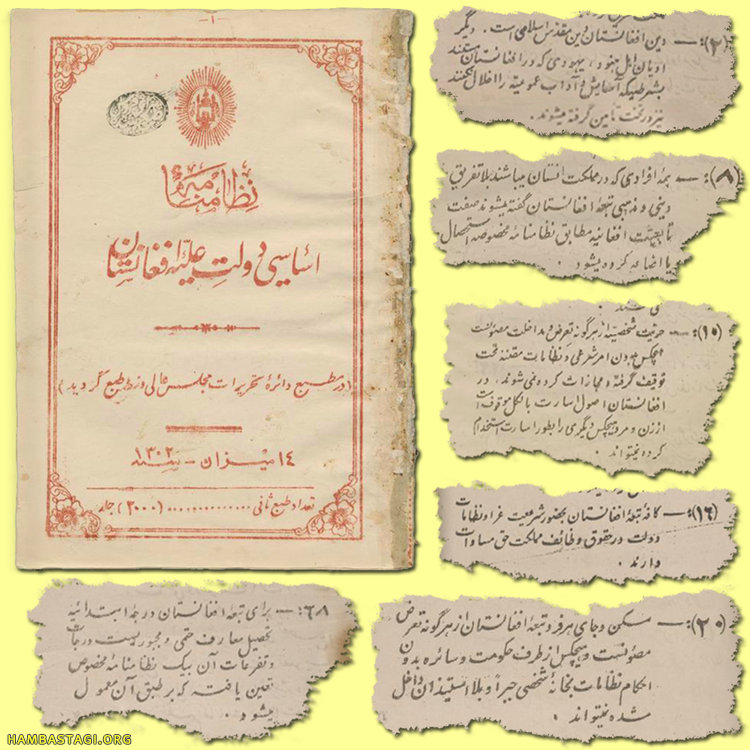 -۱-
نظامنامهٔ
اساسی دولت علیه افغانستان
(در مطبع دائرهٔ تحریرات مجلس عالی وزرا طبع گردید)
۱۴ میزان - سنه ۱۳۰۲
تعداد طبع ثانی .............. (۲۰۰۰) جلد
(۲): — دین افغانستان دین مقدس اسلامی است . دیگر
ادیان اهل هنود ، یهودی که در افغانستان هستند
بشرطیکه آسایش و آداب عمومیه را اخلال نکنند
نیز در تحت تأمین گرفته میشوند .
(۸): — همه افرادی که در مملکت افغانستان میباشند بلا تفریق
دینی و مذهبی تبعهٔ افغانستان گفته میشوند صفت
تابعیت افغانیه مطابق نظامنامهٔ مخصوصه استحصال
یا اضاعه کرده میشود .
(۱۰): — حریت شخصیه از هر گونه تعرض و مداخلت مصئونست
هیچکس بدون امر شرعی و نظامات مقننه تحت
توقیف گرفته و مجازات کرده نمی شوند . در
افغانستان اصول اسارت بالکل موقوف است
از زن و مرد هیچکس دیگری را بطور اسارت استخدام
کرده نمیتواند .
(۱۶): — کافهٔ تبعهٔ افغانستان بحضور شریعت غرا و نظامات
دولت در حقوق و وظائف مملکت حق مساوات
دارند .
(۲۰): — مسکن و جای هر فرد تبعهٔ افغانستان از هر گونه تعرض
مصئونست و هیچکس از طرف حکومت و سائره بدون
احکام نظامات بخانهٔ شخصی جبراً و بلا استیذان داخل
شده نمیتواند .
۶۸: — برای تبعهٔ افغانستان درجهٔ ابتدائیه
تحصیل معارف حتمی و مجبوریست درجات
و تفرعات آن بیک نظامنامهٔ مخصوص
تعین یافته که بر طبق آن معمول
میشود .
HAMBASTAGI.ORG